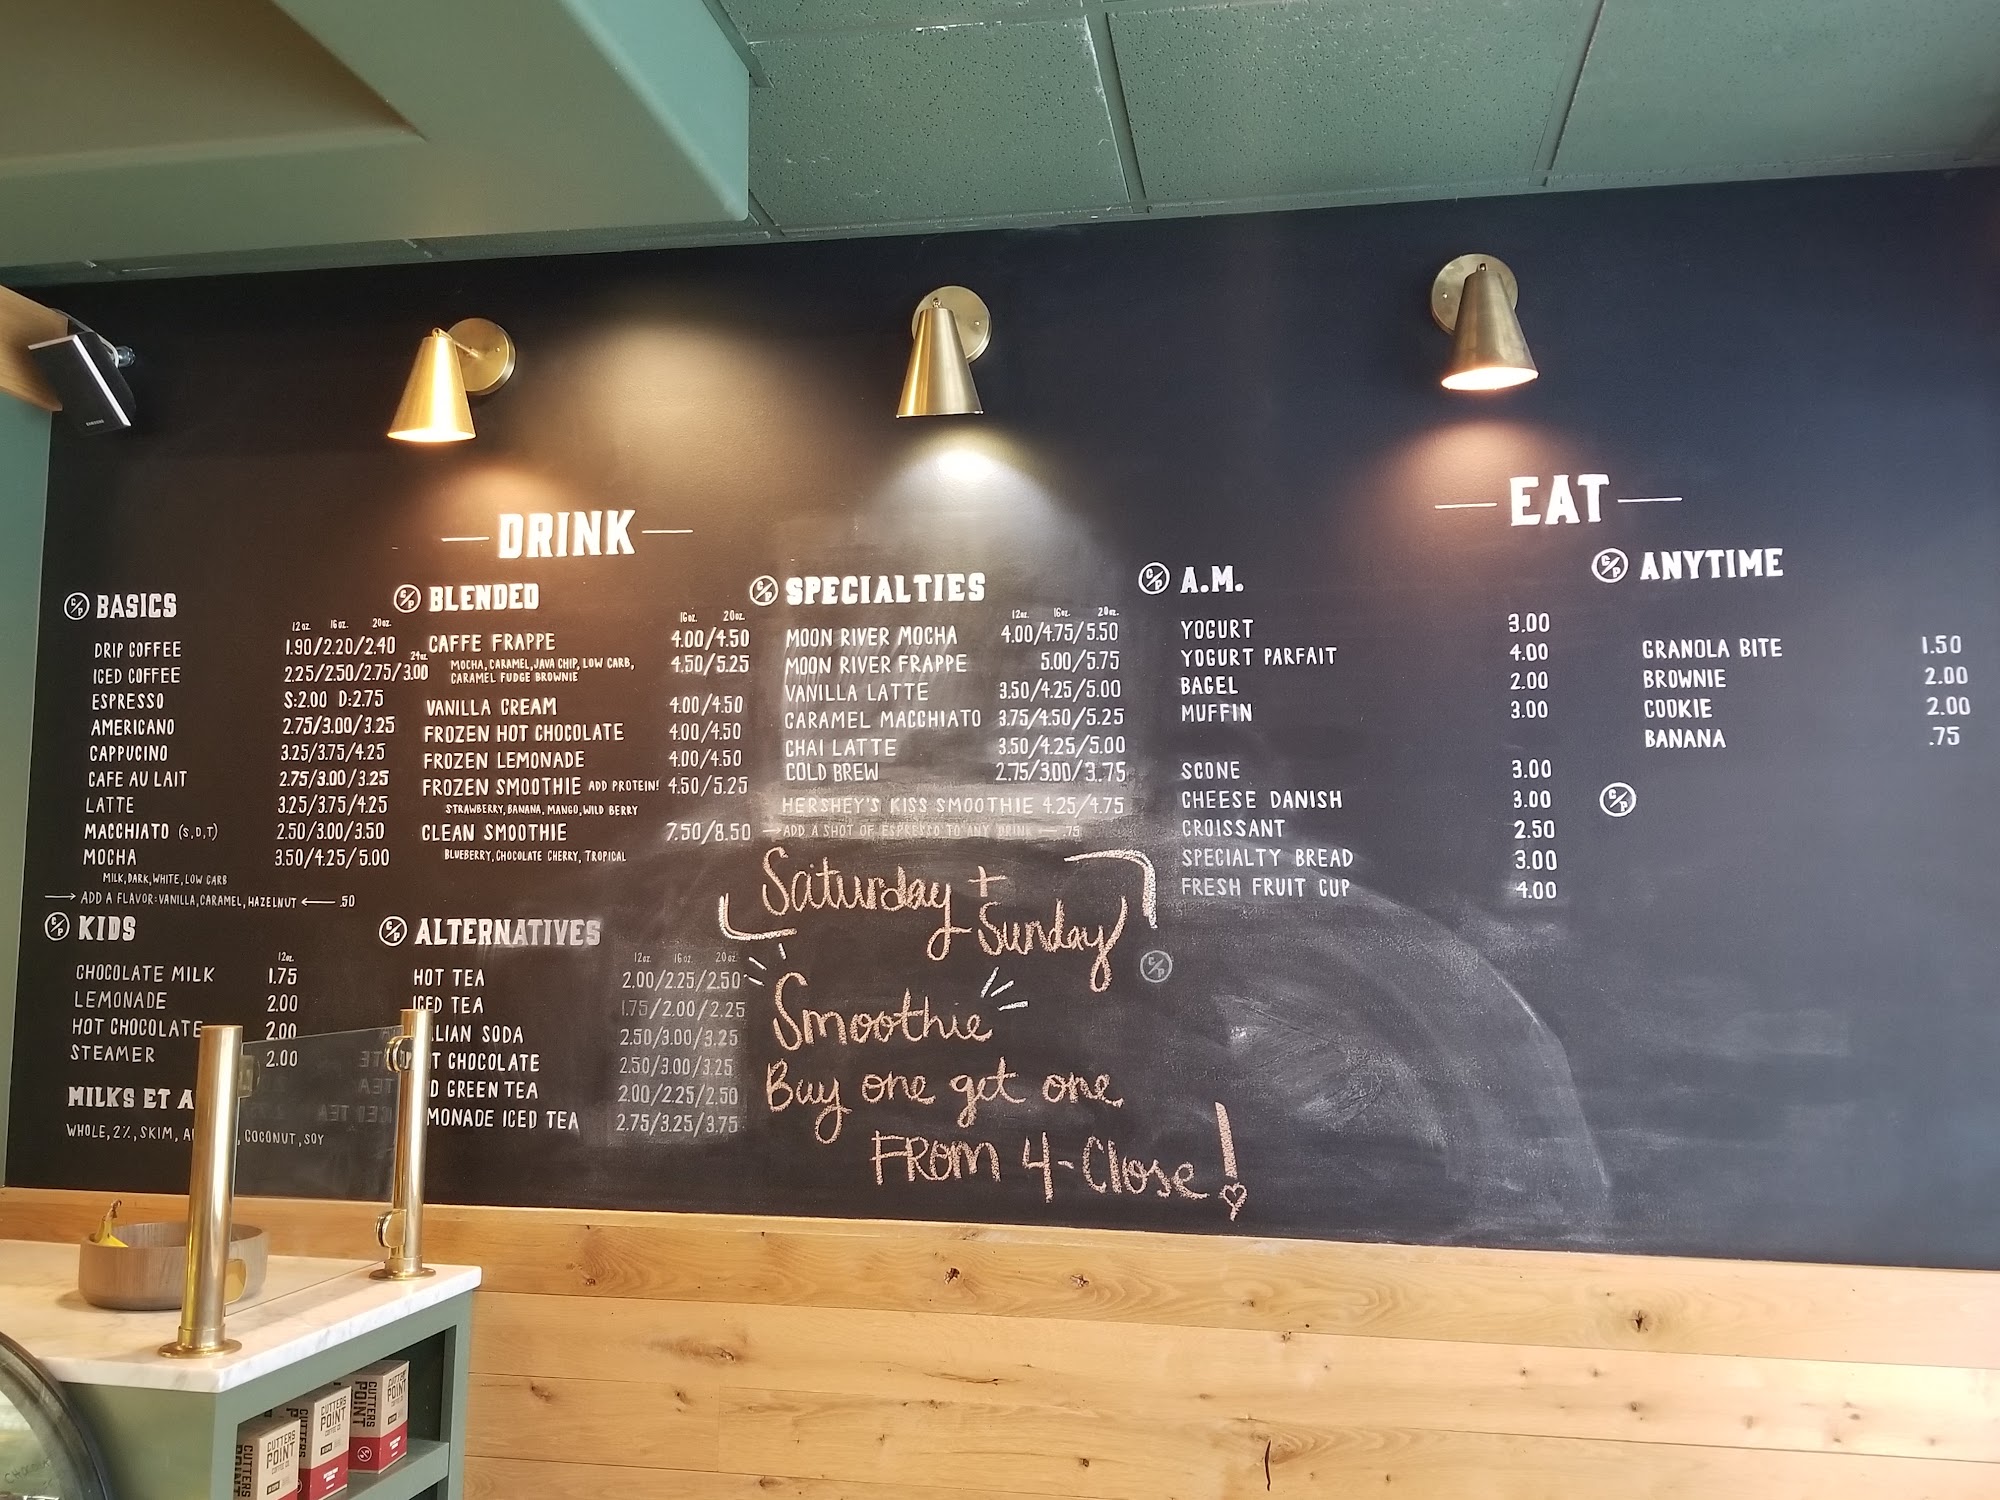 DRINK
BASICS
12oz. 16oz. 20oz.
DRIP COFFEE 1.90/2.20/2.40
24oz.
ICED COFFEE 2.25/2.50/2.75/3.00
ESPRESSO S:2.00 D:2.75
AMERICANO 2.75/3.00/3.25
CAPPUCINO 3.25/3.75/4.25
CAFE AU LAIT 2.75/3.00/3.25
LATTE 3.25/3.75/4.25
MACCHIATO (S,D,T) 2.50/3.00/3.50
MOCHA 3.50/4.25/5.00
MILK, DARK, WHITE, LOW CARB
ADD A FLAVOR: VANILLA, CARAMEL, HAZELNUT .50
KIDS
12oz.
CHOCOLATE MILK 1.75
LEMONADE 2.00
HOT CHOCOLATE 2.00
STEAMER 2.00
MILKS ET A
WHOLE, 2%, SKIM, A COCONUT, SOY
BLENDED
16oz. 20oz.
CAFFE FRAPPE 4.00/4.50
MOCHA, CARAMEL, JAVA CHIP, LOW CARB, 4.50/5.25
CARAMEL FUDGE BROWNIE
VANILLA CREAM 4.00/4.50
FROZEN HOT CHOCOLATE 4.00/4.50
FROZEN LEMONADE 4.00/4.50
FROZEN SMOOTHIE ADD PROTEIN! 4.50/5.25
STRAWBERRY, BANANA, MANGO, WILD BERRY
CLEAN SMOOTHIE 7.50/8.50
BLUEBERRY, CHOCOLATE CHERRY, TROPICAL
ALTERNATIVES
12oz. 16oz. 20oz.
HOT TEA 2.00/2.25/2.50
ICED TEA 1.75/2.00/2.25
LIAN SODA 2.50/3.00/3.25
T CHOCOLATE 2.50/3.00/3.25
D GREEN TEA 2.00/2.25/2.50
MONADE ICED TEA 2.75/3.25/3.75
SPECIALTIES
12oz. 16oz. 20oz.
MOON RIVER MOCHA 4.00/4.75/5.50
MOON RIVER FRAPPE 5.00/5.75
VANILLA LATTE 3.50/4.25/5.00
CARAMEL MACCHIATO 3.75/4.50/5.25
CHAI LATTE 3.50/4.25/5.00
COLD BREW 2.75/3.00/3.75
HERSHEY'S KISS SMOOTHIE 4.25/4.75
ADD A SHOT OF ESPRESSO TO ANY DRINK .75
Saturday +
Sunday
Smoothie
Buy one get one
FROM 4-Close!
EAT
A.M.
YOGURT 3.00
YOGURT PARFAIT 4.00
BAGEL 2.00
MUFFIN 3.00
SCONE 3.00
CHEESE DANISH 3.00
CROISSANT 2.50
SPECIALTY BREAD 3.00
FRESH FRUIT CUP 4.00
ANYTIME
GRANOLA BITE 1.50
BROWNIE 2.00
COOKIE 2.00
BANANA .75
CUTTERS
POINT
COFFEE CO.
CUTTERS
POINT
CUTTERS
POINT